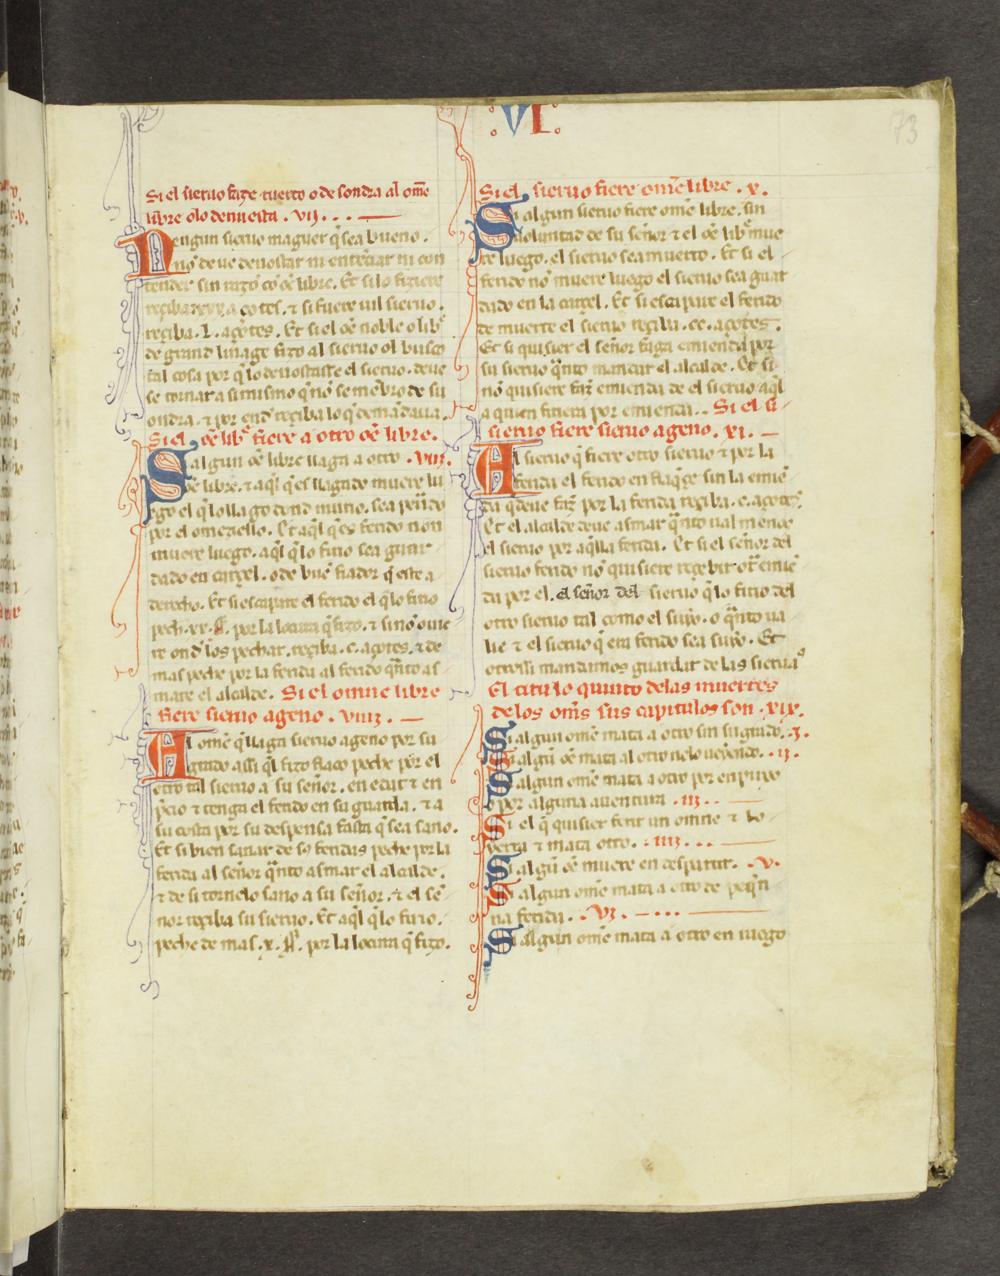 73
: VI :
Si el sieruo faze tuerto o desondra al ome
libre o lo denuesta . VII . . .
Nengun sieruo maguer q̃ sea bueno .
no deue denostar ni entençiar ni con
tender sin razõ cõ oẽ libre. Et si lo fiziere
reçiba açotes, ⁊ si fuere uil sieruo .
reçiba . L . açotes. Et si el oẽ noble o libr̃
de grand linage fizo al sieruo ol busco
tal cosa por q̃ lo denostasse el sieruo . deue
se tornar a si mismo q̃ nõ se mẽbro de su
ondra . ⁊ por end reçiba lo q̃ demãdaua .
Si el oẽ libr̃ fiere a otro oẽ libre .
Si algun oẽ libre llaga a otro . VIII .
oẽ libre . ⁊ aq̃l q̃ es llagado muere lu
ego el q̃ lo llago dond murio . sea peñdo
por el omeziello . Et aq̃l q̃ es ferido non
muere luego . aq̃l q̃ lo firio sea guar
dado en carçel . o de buẽ fiador q̃ este a
derecho . Et si escapare el ferido el q̃ lo firio
pech . xx . por la locura q̃ fizo . ⁊ si nõ ouie
re ond los pechar . reçiba . c . açotes . ⁊ de
mas peche por la ferida al ferido q̃nto as
mare el alcalde . Si el omne libre
fiere sieruo ageno . VIIII . —
Al ome q̃ llaga sieruo ageno por su
grado assi q̃l fizo flaco peche por el
otro tal sieruo a su señor . en edat ⁊ en
p̃cio ⁊ tenga el ferido en su guarda . ⁊ a
su costa por su despensa fasta q̃ sea sano .
Et si bien sanar de so feridas peche por la
ferida al señor q̃nto asmar el alcalde .
⁊ de si tornelo sano a su señor . ⁊ el se
ñor reçiba su sieruo . Et aq̃l q̃ lo firio .
peche de mas . x . por la locura q̃ fizo .
Si el sieruo fiere ome libre . X .
Si algun sieruo fiere ome libre . sin
uoluntad de su señor ⁊ el oẽ libr̃ mue
re luego . el sieruo sea muerto . Et si el
ferido nõ muere luego el sieruo sea guar
dado en la carçel . Et si escapare el ferido
de muerte el sieruo reçiba . cc . açotes .
Et si quisier el señor faga emienda por
su sieruo q̃nto mandar el alcalde . Et si
nõ quisiere faz̃ emienda de el sieruo aq̃l
a quien firiera por emienda . . Si el si
sieruo fiere sieruo ageno . XI . —
Al sieruo q̃ fiere otro sieruo ⁊ por la
ferida el ferido en flaq̃çe sin la emiẽ
da q̃ deue faz̃ por la ferida reçiba . c . açotes .
Et el alcalde deue asmar q̃nto ual menos
el sieruo por aq̃lla ferida . Et si el señor del
sieruo ferido nõ quisiere reçebir otr̃ emiẽ
da por el . el señor del sieruo q̃ lo firio del
otro sieruo tal como el suyo . o q̃nto ua
lie ⁊ el sieruo q̃ era ferido sea suyo . Et
otrossi mandamos guardar de las sieruas
El titulo quinto de las muertes
de los om̃s sus capitulos son . XIX .
Si algun ome mata a otro sin su grado . I .
Si algũ oẽ mata al otro nelo ueyendo . II .
Si algun ome mata a otro por enpuxo
o por alguna auentura . III . .
Si el q̃ quisier ferir un omne ⁊ lo
yerra ⁊ mata otro . IIII . . .
Si algũ oẽ muere en despartir . V .
Si algun ome mata a otro de peq̃n
na ferida . . VI . — . . .
Si algun ome mata a otro en iuego